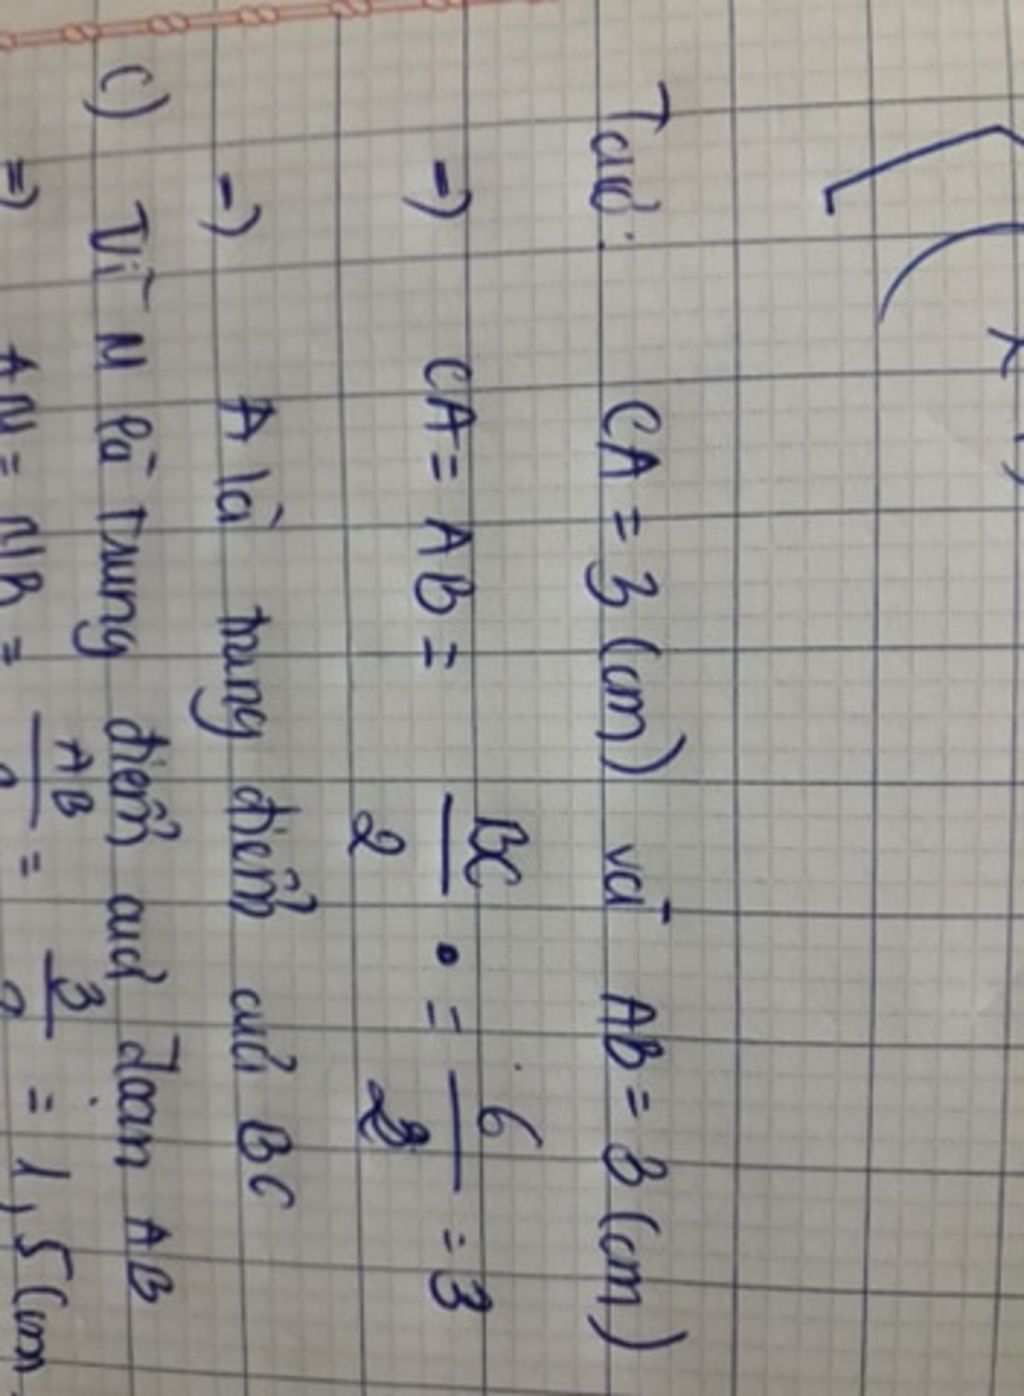 Ta có: CA = 3 (cm) và AB = 3 (cm)
-) CA = AB = BC/2 = 6/2 = 3
-) A là trung điểm của BC
c) Vì M là trung điểm của đoạn AB
=) AM = MB = AB/2 = 3/2 = 1,5 (cm